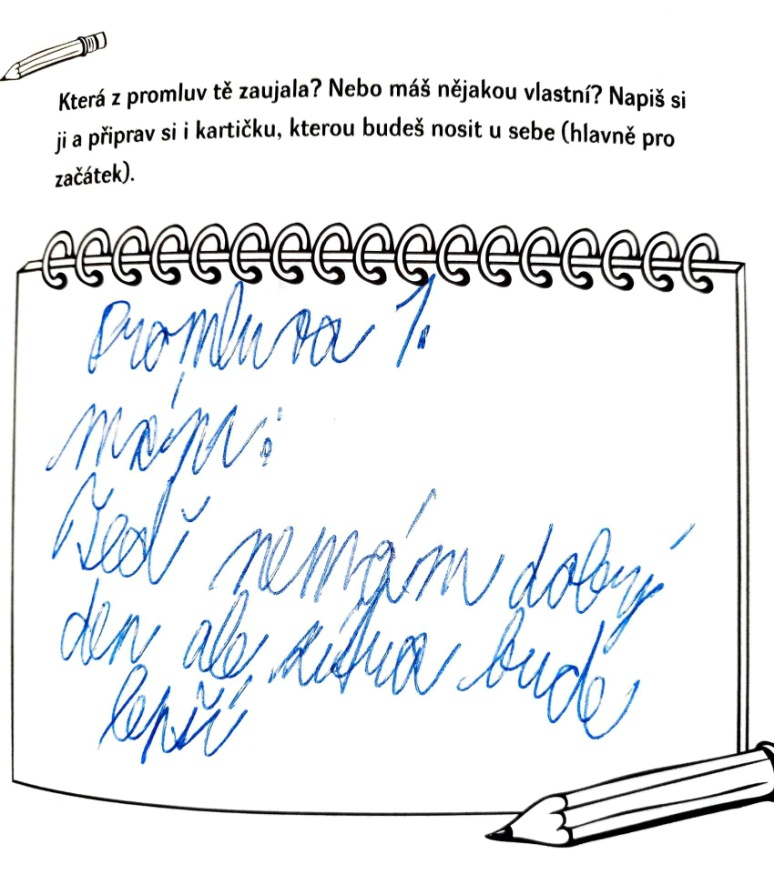 Která z promluv tě zaujala? Nebo máš nějakou vlastní? Napiš si
ji a připrav si i kartičku, kterou budeš nosit u sebe (hlavně pro
začátek).
promluva 1.
den ale zítra bude
lepší
nemám dobrý